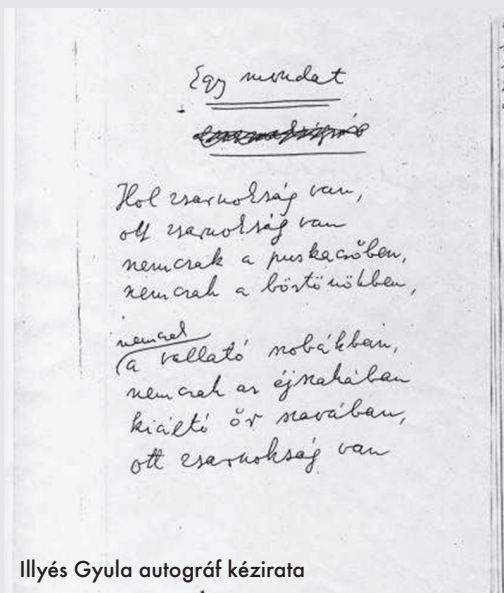 Egy mondat
Hol zsarnokság van,
ott zsarnokság van
nemcsak a puskacsőben,
nemcsak a börtönökben,
nemcsak
a vallató szobákban,
nemcsak az éjszakában
kiáltó őr szavában,
ott zsarnokság van
Illyés Gyula autográf kézirata